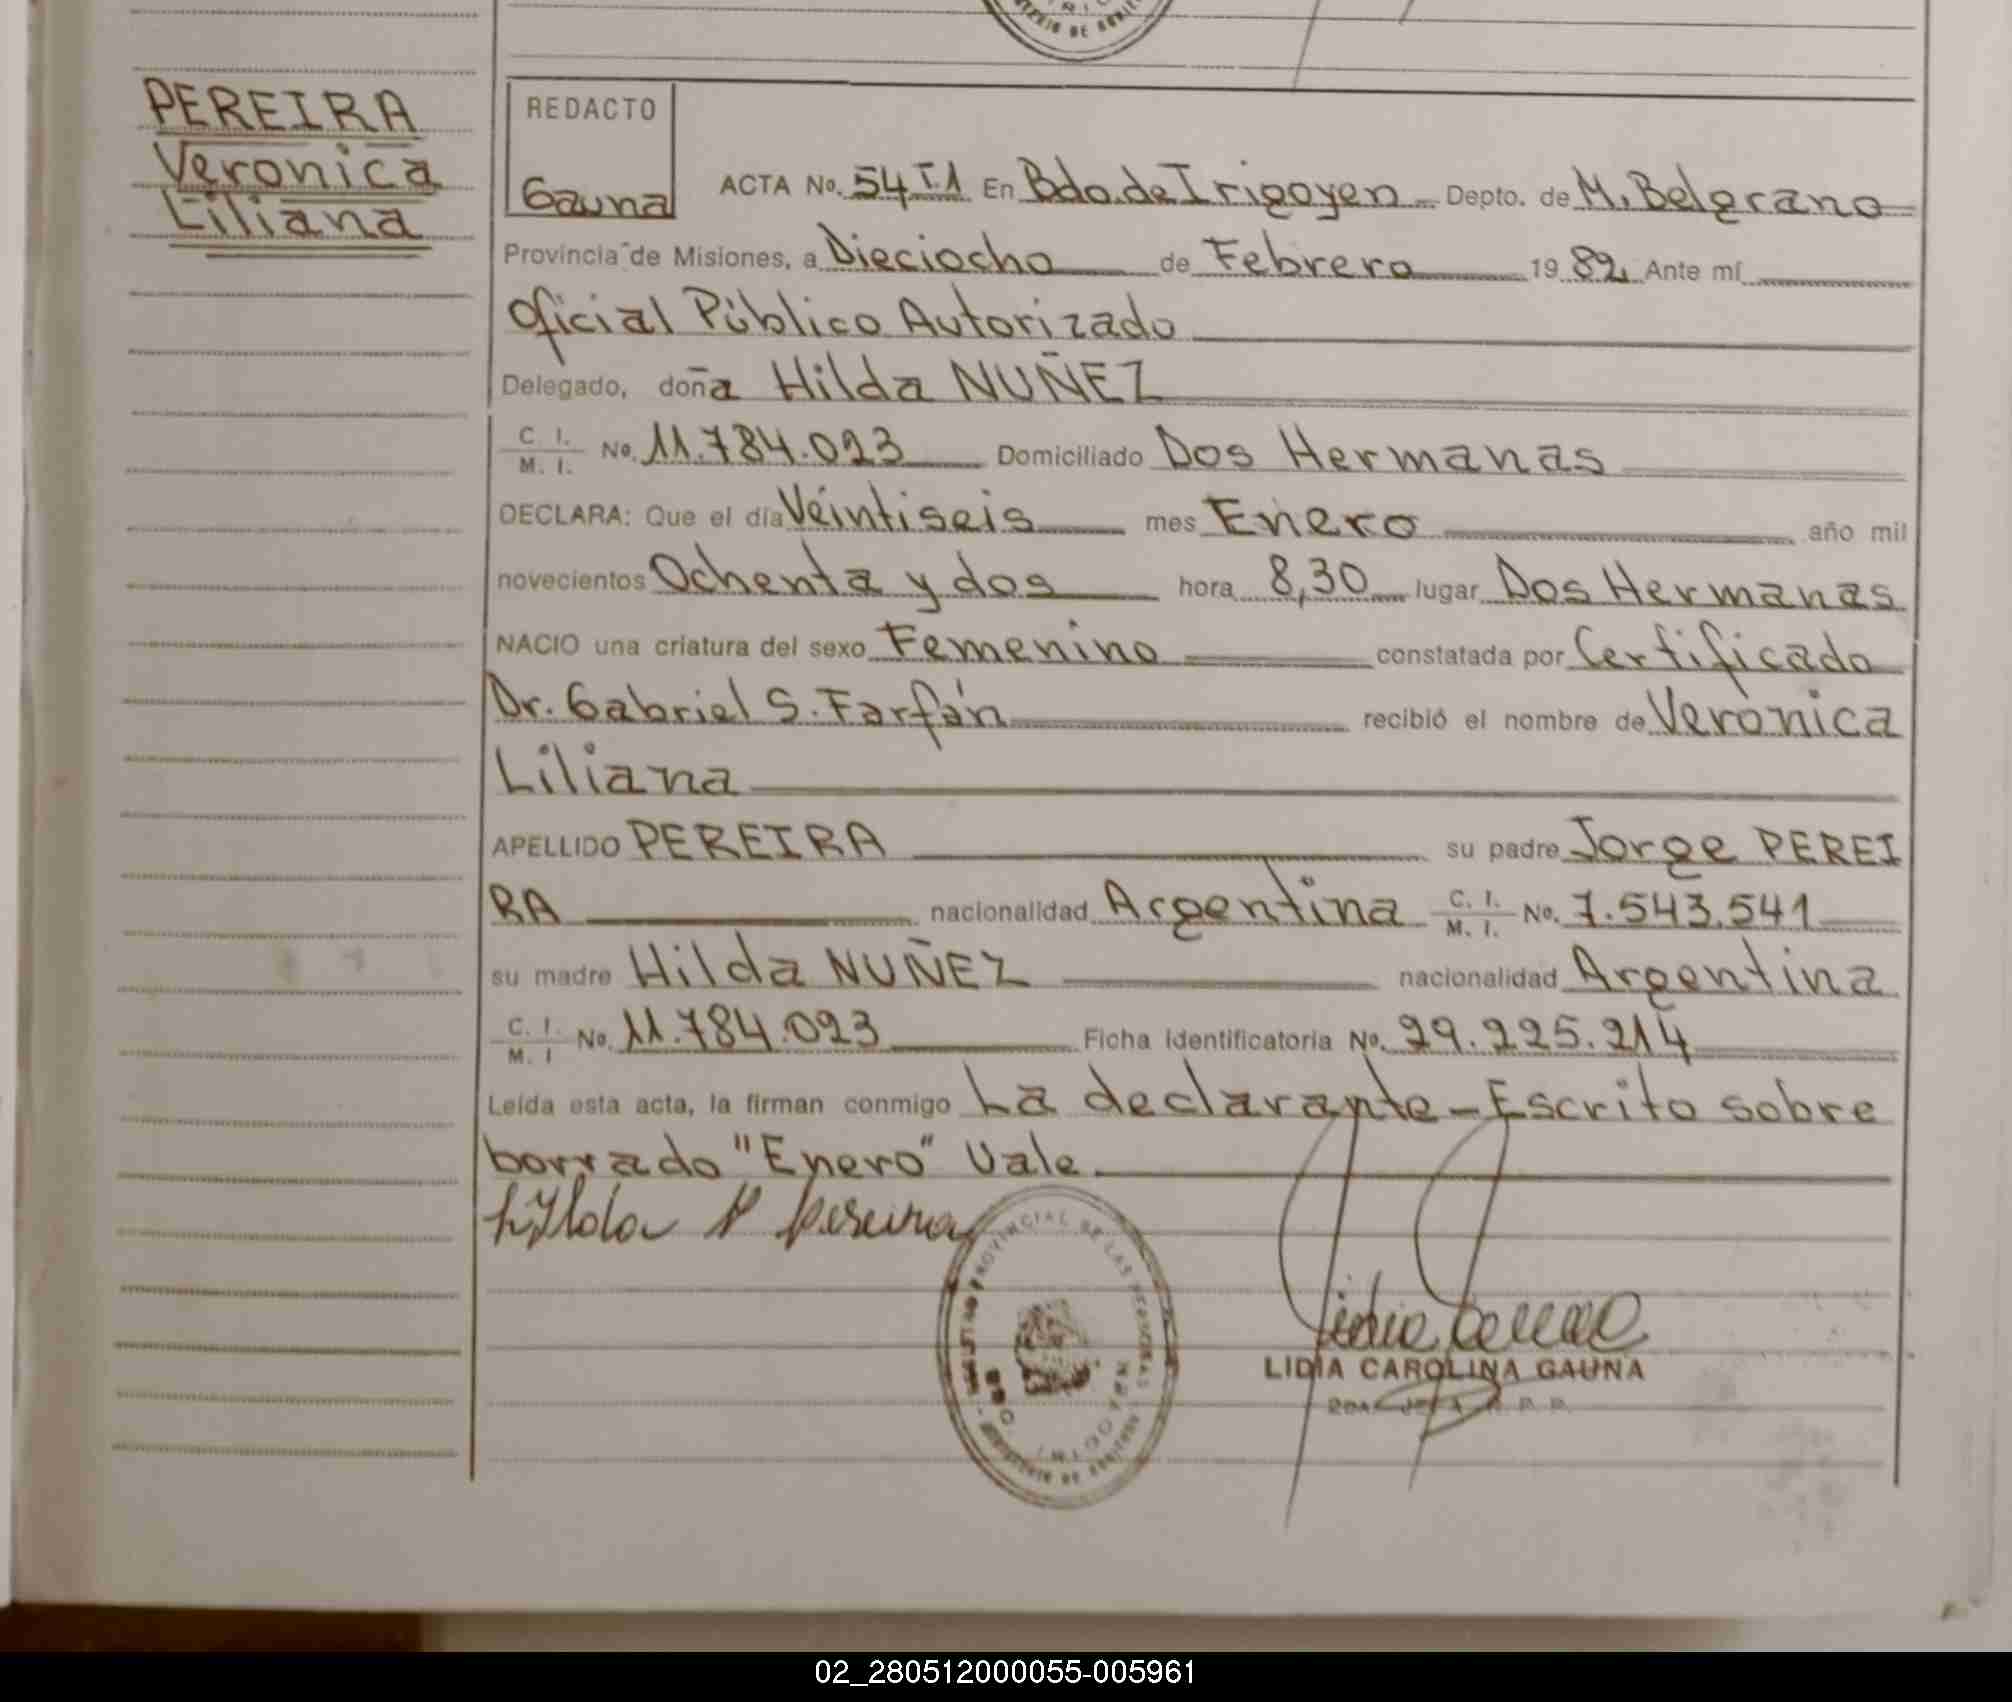 PEREIRA
Veronica
Liliana
REDACTO
Gauna
ACTA No. 54 T.1 En Bdo. de Irigoyen Depto. de M. Belgrano
Provincia de Misiones, a Dieciocho de Febrero 19 82 Ante mí
Oficial Público Autorizado
Delegado, doña Hilda NUÑEZ
C. I. / M. I. No. 11.784.023 Domiciliado Dos Hermanas
DECLARA: Que el día Veintiseis mes Enero año mil
novecientos Ochenta y dos hora 8,30 lugar Dos Hermanas
NACIO una criatura del sexo Femenino constatada por Certificado
Dr. Gabriel S. Farfán recibió el nombre de Veronica
Liliana
APELLIDO PEREIRA su padre Jorge PEREI
RA nacionalidad Argentina C. I. / M. I. No. 7.543.541
su madre Hilda NUÑEZ nacionalidad Argentina
C. I. / M. I No. 11.784.023 Ficha identificatoria No. 29.225.214
Leída esta acta, la firman conmigo La declarante - Escrito sobre
borrado "Enero" Vale
PROVINCIAL DE LAS PERSONAS
LIDIA CAROLINA GAUNA
02_280512000055-005961